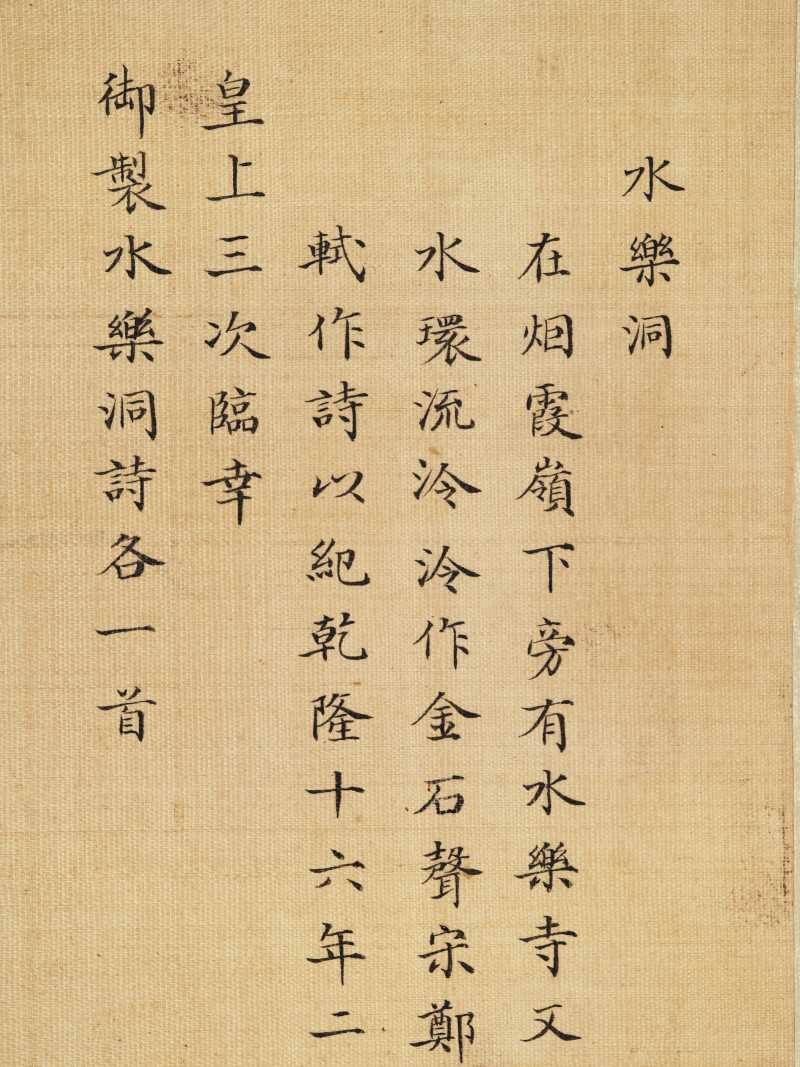 水樂洞
在烟霞嶺下旁有水樂寺又
水環流泠泠作金石聲宋鄭
軾作詩以紀乾隆十六年二
皇上三次臨幸
御製水樂洞詩各一首